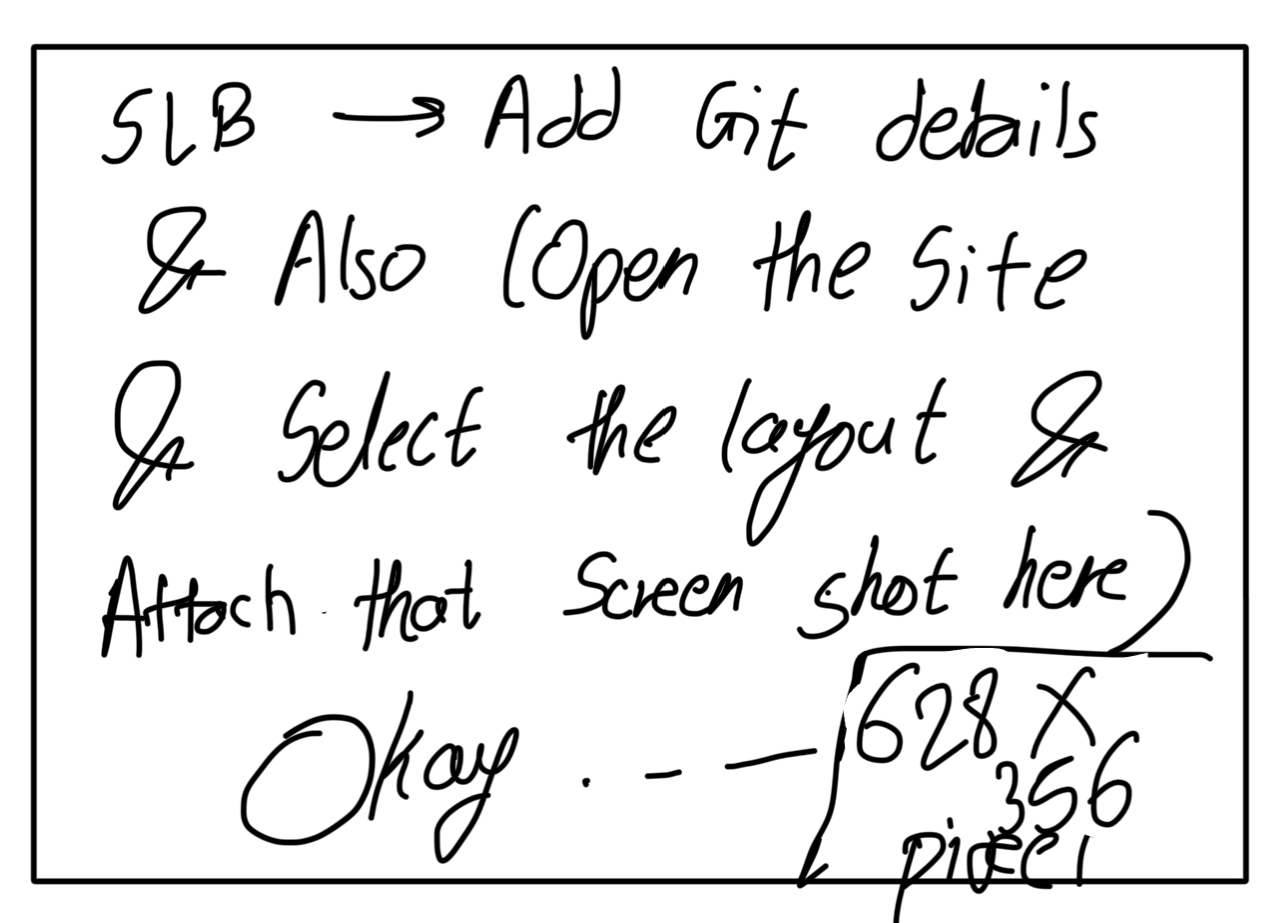 SLB → Add Git details
& Also (Open the Site
& Select the layout &
Attach that Screen shot here)
Okay . - — 628 X
356
pixel